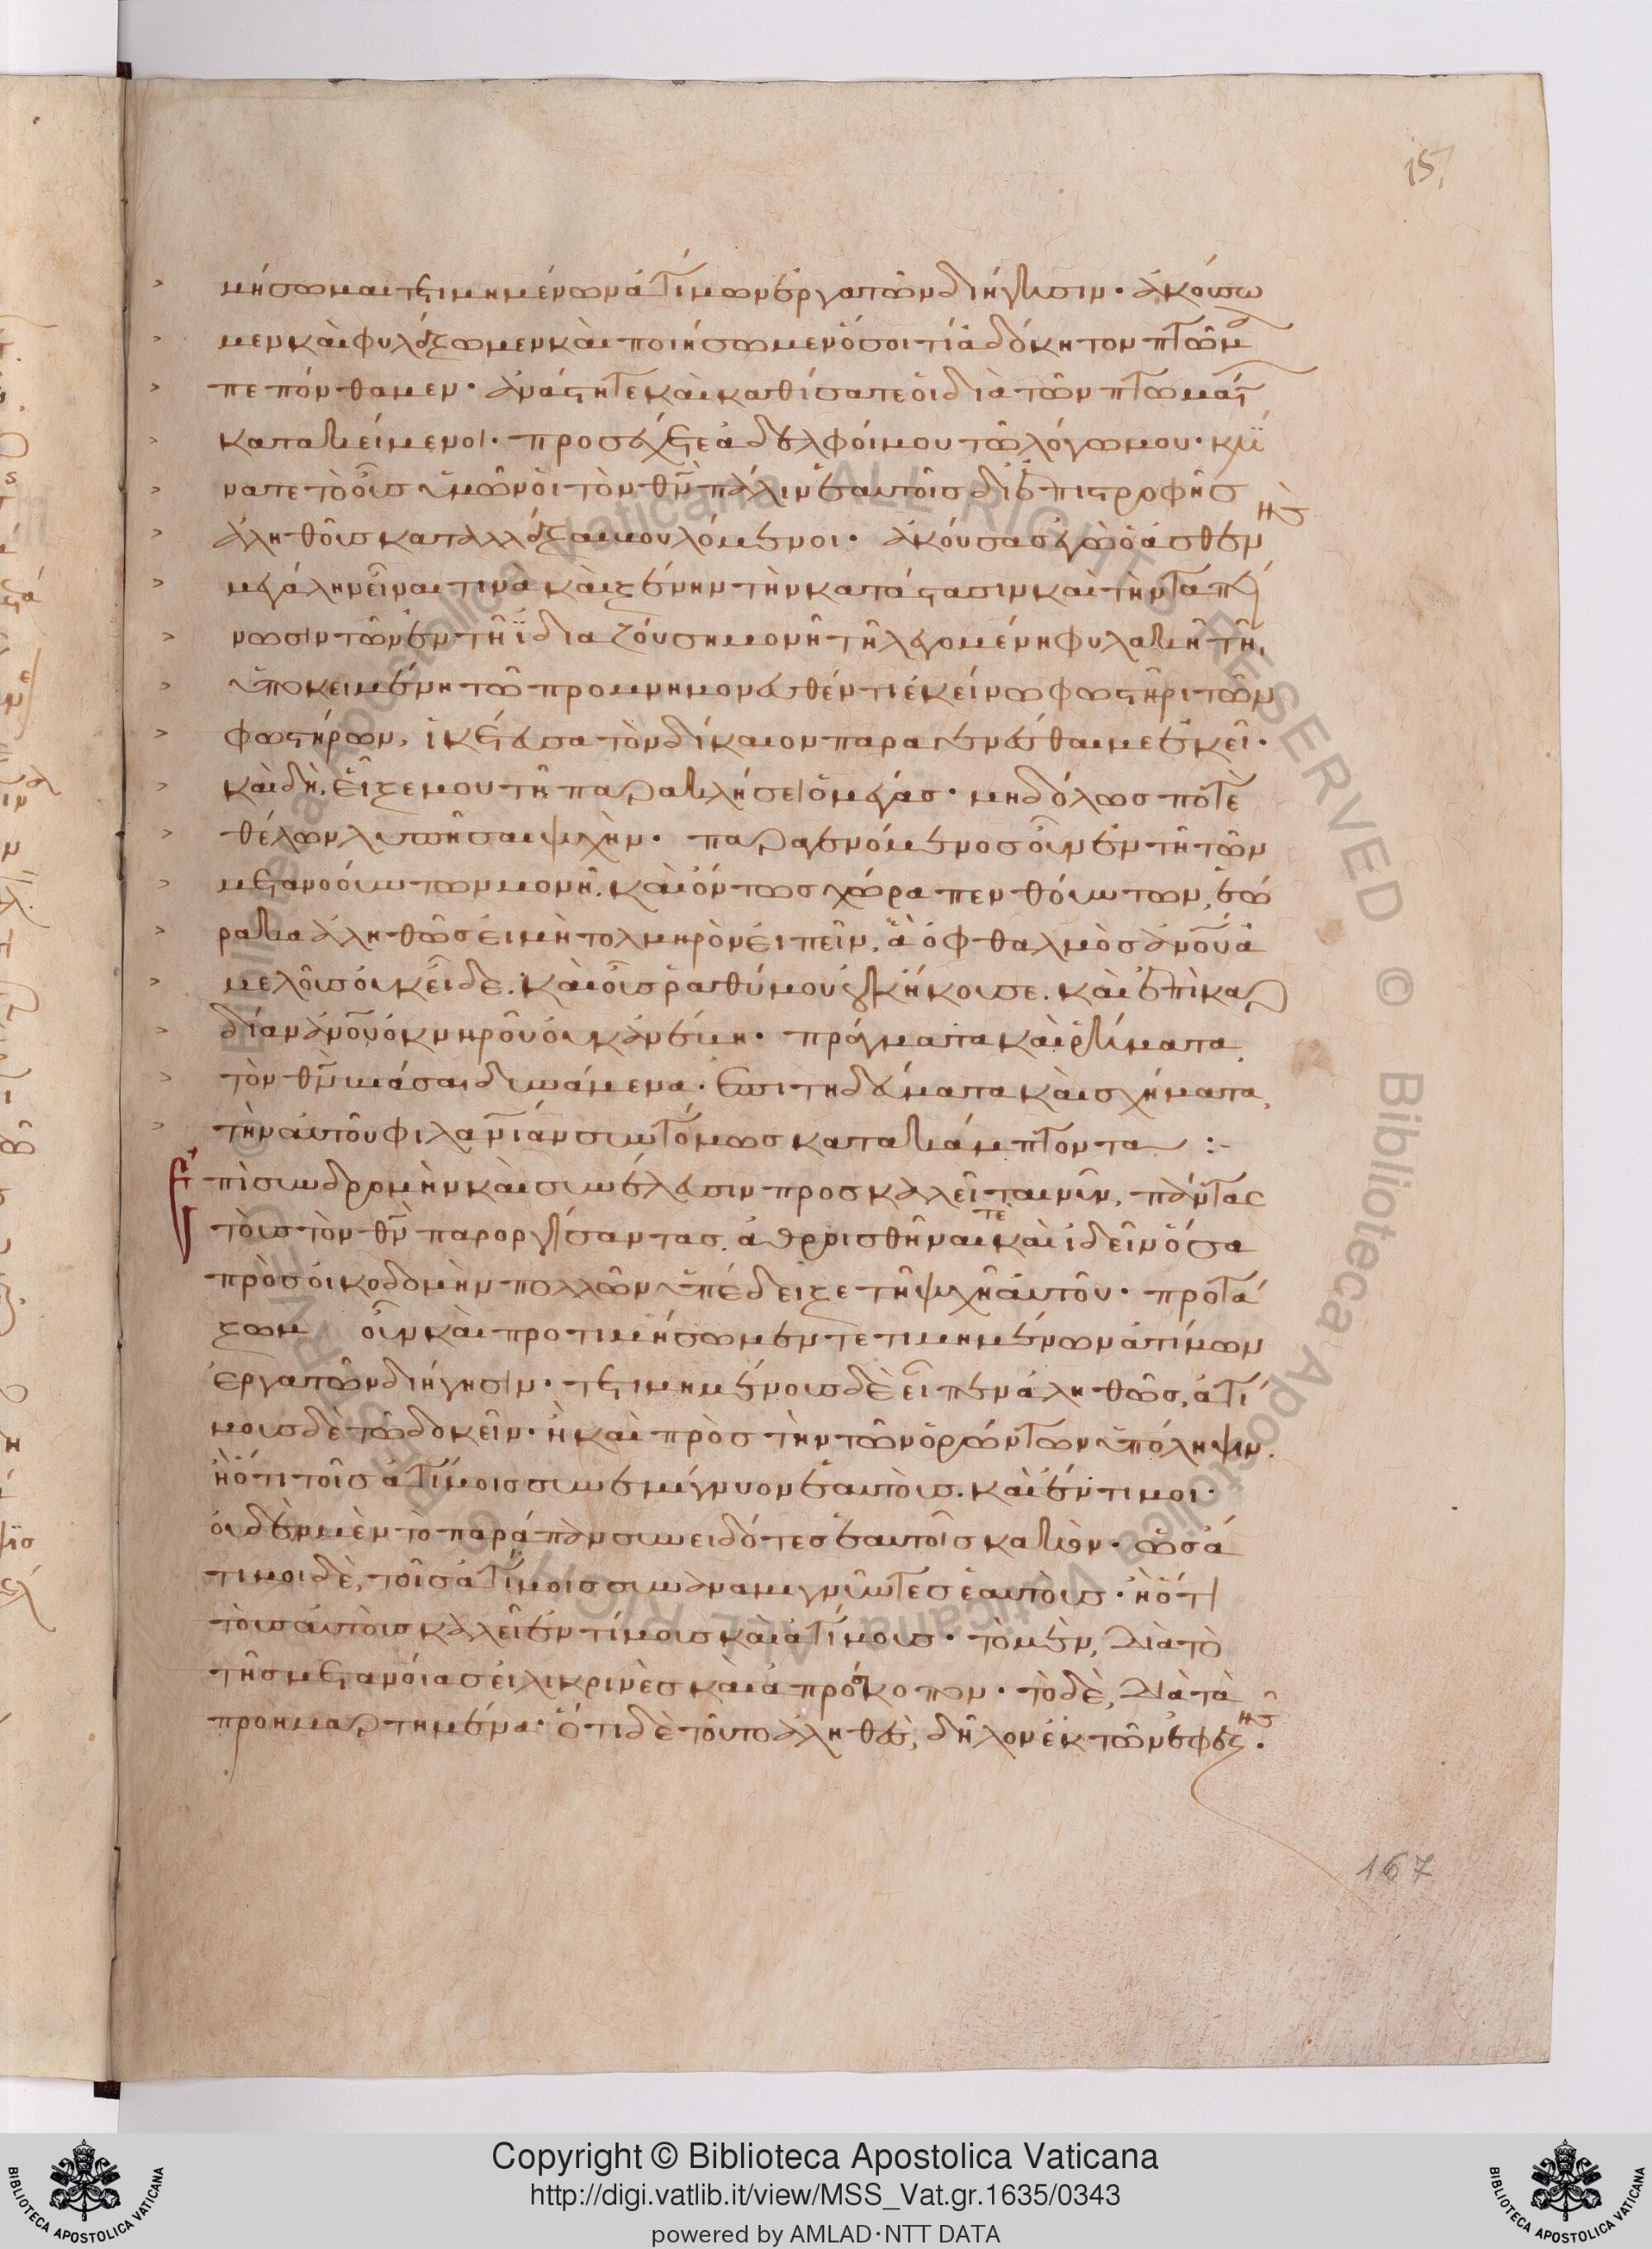 157
μήσωμαι τετιμημένων ἀτίμων ἐργατῶν διήγησιν· ἀκούσω
μεν καὶ φυλάξωμεν καὶ ποιήσωμεν ὅσοι τί ἀδόκητον πτῶμ
πεπόνθαμεν· ἀνάστητε καὶ καθίσατε οἱ διὰ τῶν πτωμάτ
κατακείμενοι· προσέχετε ἀδελφοί μου τῶ λόγω μου· κλί
νατε τὸ οὖς ὑμῶν οἱ τὸν θν̄ πάλιν ἑαυτοῖς δι' ἐπιστροφῆς
ἀληθοῦς καταλλάξαι βουλόμενοι· ἀκούσας ἐγὼ ὁ ἀσθενὴς
μεγάλην εἶναι τινὰ καὶ ξένην τὴν κατάστασιν καὶ τὴν ταπεί
νωσιν τῶν ἐν τῆ ἰδιαζούση μονῆ τῆ λεγομένη φυλακῆ τῆ
ὑποκειμένη τῶ προμνημονευθέντι ἐκείνω φωστῆρι τῶν
φωστήρων, ἱκέτευσα τὸν δίκαιον παραγενέσθαι με ἐκεῖ·
καὶ δὴ. εἶξε μου τῆ παρακλήσει ὁ μέγας· μηδόλως ποτὲ
θέλων λυπῆσαι ψυχὴν· παραγενόμενος οὖν ἐν τῆ τῶν
μετανοούντων μονῆ. καὶ ὄντως χώρα πενθούντων, ἑώ
ρακα ἀληθῶς εἰ μὴ τολμηρὸν εἰπεῖν, ἃ ὀφθαλμὸς ἀνοῦ ἀ
μελοῦς οὐκ εἶδε. καὶ οὖς ραθύμου οὐκ ἤκουσε. καὶ ἐπὶ καρ
δίαν ἀνοῦ ὀκνηροῦ οὐκ ἀνέβη· πράγματα καὶ ρήματα
τὸν θν̄ βιάσαι δυνάμενα· ἐπιτηδεύματα καὶ σχήματα,
τὴν αὐτοῦ φιλανιαν συντόμως κατακάμπτοντα :-
Ἐπὶ συνδρομὴν καὶ συνέλευσιν προσκαλεῖται νῦν, πάντας
τοὺς τὸν θν̄ παροργίσαντας. ἀθροισθῆναι τὲ καὶ ἰδεῖν ὅσα
πρὸς οἰκοδομὴν πολλῶν ὑπέδειξε τῆ ψυχῆ αὐτοῦ· προτά
ξωμ οὖν καὶ προτιμήσωμεν τετιμημένων ἀτίμων
ἐργατῶν διήγησιν· τετιμημένους δὲ εἶπεν ἀληθῶς, ἀτί
μους δὲ τῶ δοκεῖν· ἢ καὶ πρὸς τὴν τῶν ὁρώντων ὑπόληψιν.
ἢ ὅτι τοῖς ἀτίμοις συνεμίγνυον ἑαυτοὺς. καὶ ἔντιμοι·
οὐδὲν μὲν τὸ παράπαν συνειδότες ἑαυτοῖς κακὸν· ὡς ἄ
τιμοι δὲ, τοῖς ἀτίμοις συναναμιγνῦντες ἑαυτοὺς· ἢ ὅτι
τοὺς αὐτοὺς καλεῖ ἐντίμους καὶ ἀτίμους· τὸ μὲν, διὰ τὸ
τῆς μετανοίας εἰλικρινὲς καὶ ἀπρόσκοπον· τὸ δὲ, διὰ τὰ
προημαρτημένα· ὅτι δὲ τοῦτο ἀληθὲς, δῆλον ἐκ τῶν ἐφεξῆς.
167
Copyright © Biblioteca Apostolica Vaticana
http://digi.vatlib.it/view/MSS_Vat.gr.1635/0343
powered by AMLAD·NTT DATA
BIBLIOTECA APOSTOLICA VATICANA
BIBLIOTECA APOSTOLICA VATICANA